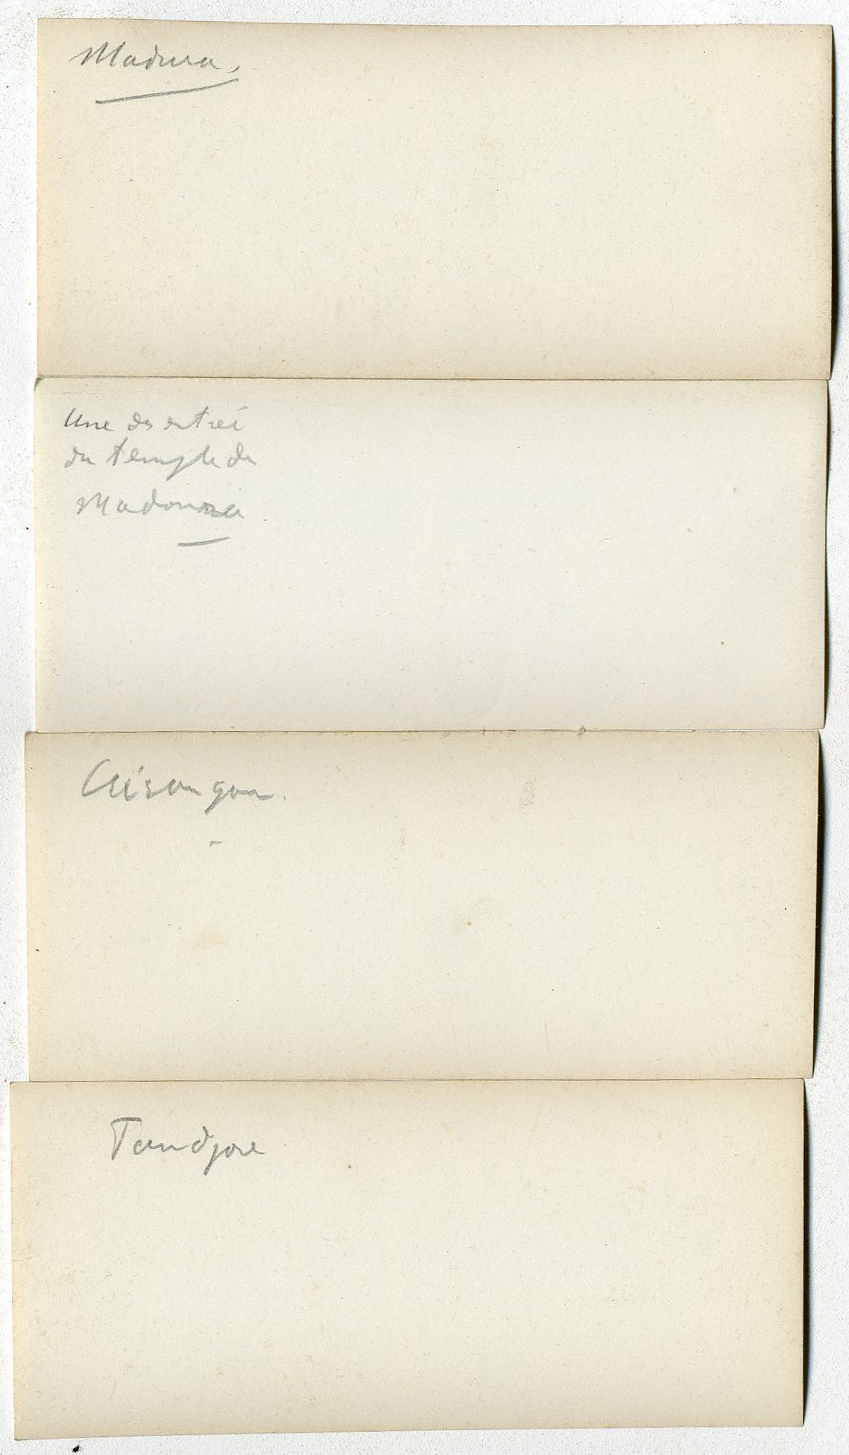 Madura.
Une des entrées
du temple de
Madoura
Tandjore